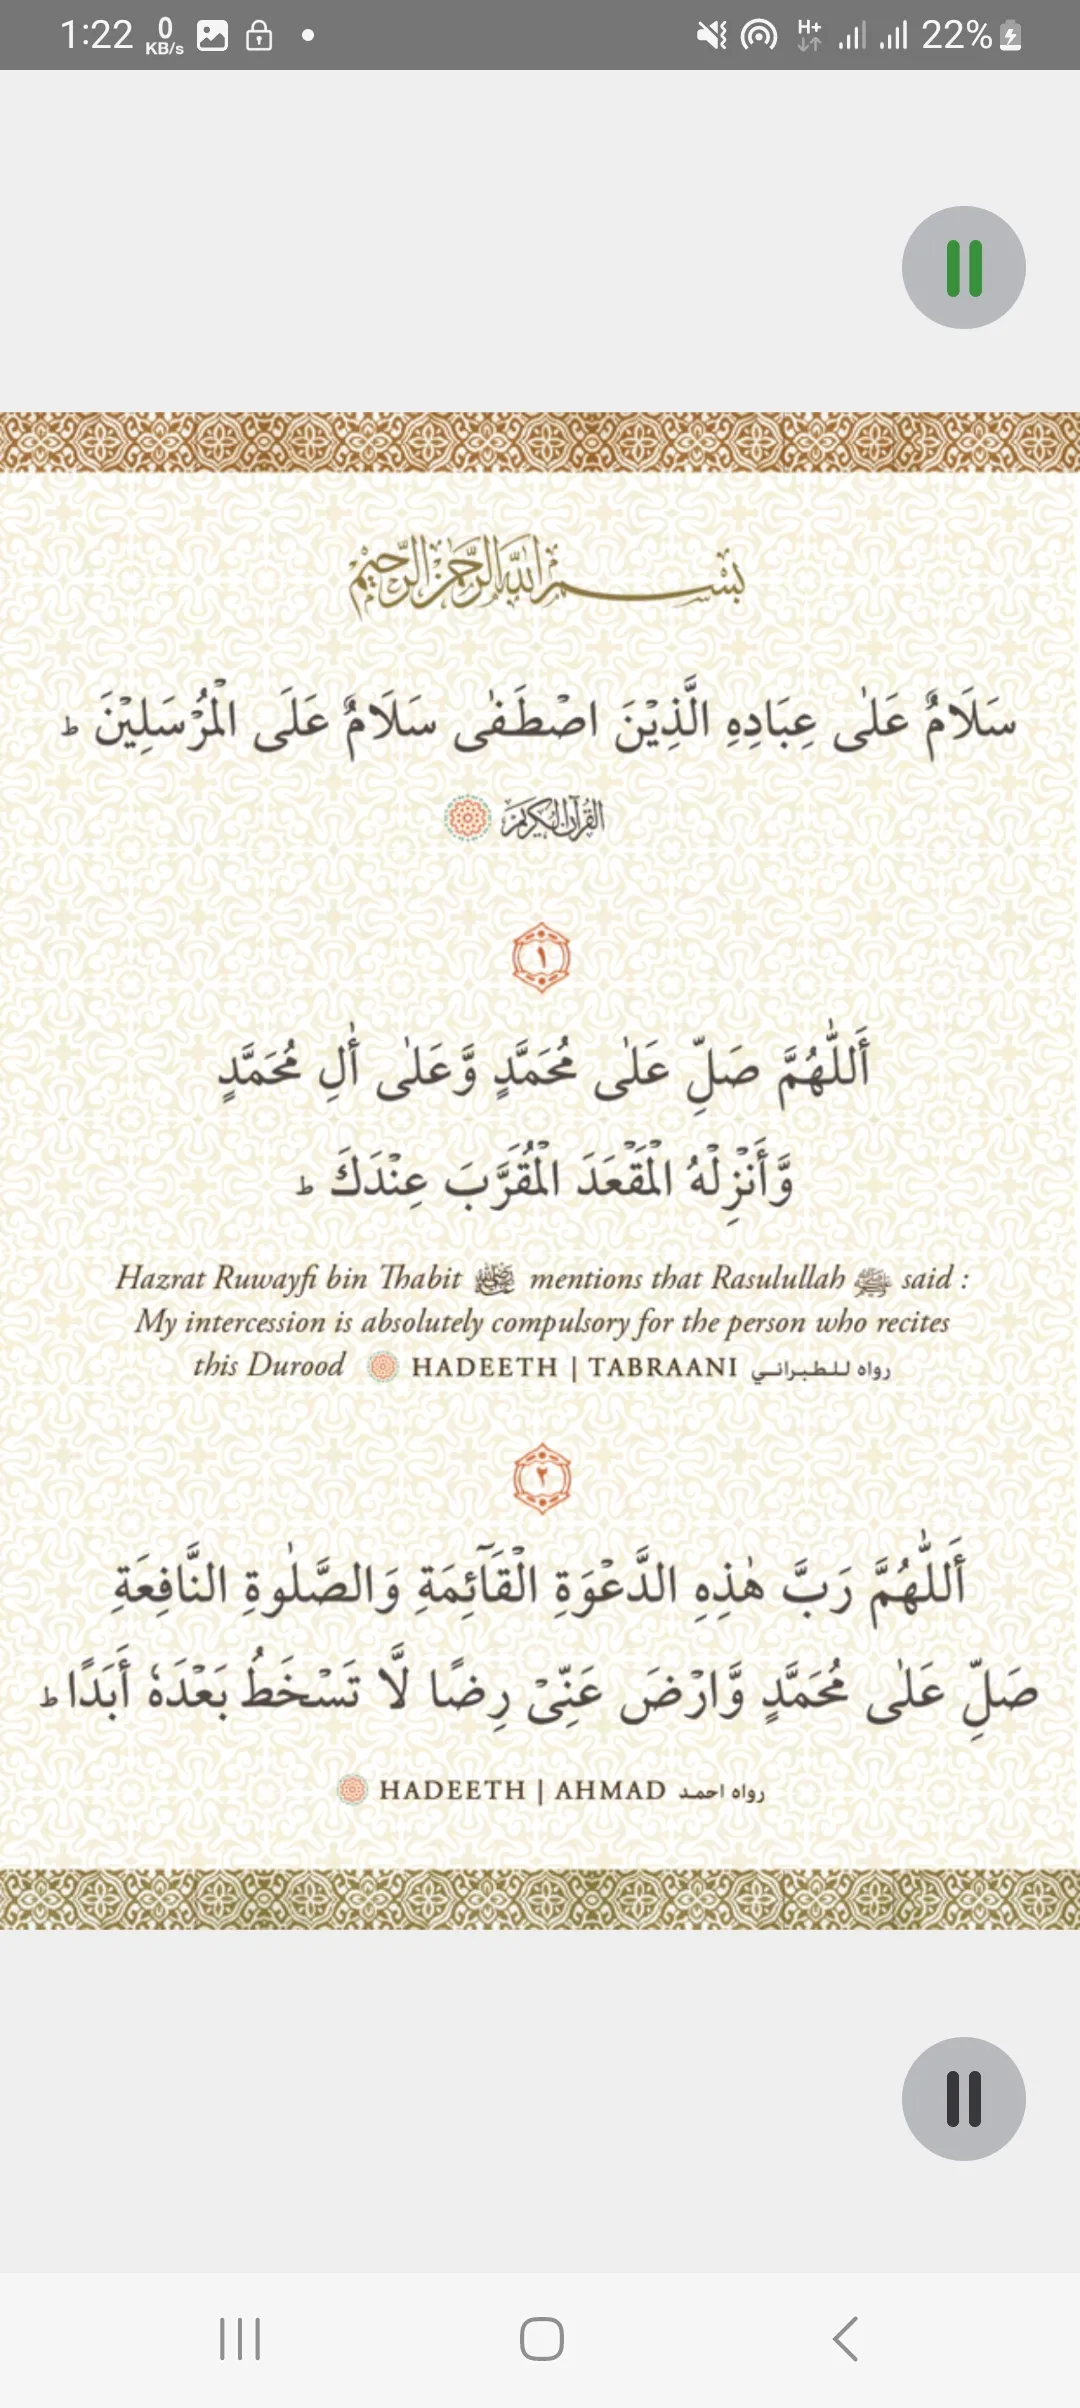 1:22 0 KB/s H+ 22%
بسم الله الرحمن الرحيم
سَلَامٌ عَلٰى عِبَادِهِ الَّذِيْنَ اصْطَفٰى سَلَامٌ عَلَى الْمُرْسَلِيْنَ ط
القرآن الكريم
١
أَللّٰهُمَّ صَلِّ عَلٰى مُحَمَّدٍ وَّعَلٰى أٰلِ مُحَمَّدٍ
وَّأَنْزِلْهُ الْمَقْعَدَ الْمُقَرَّبَ عِنْدَكَ ط
Hazrat Ruwayfi bin Thabit رضي الله عنه mentions that Rasulullah ﷺ said :
My intercession is absolutely compulsory for the person who recites
this Durood HADEETH | TABRAANI رواه للطبراني
٢
أَللّٰهُمَّ رَبَّ هٰذِهِ الدَّعْوَةِ الْقَآئِمَةِ وَالصَّلٰوةِ النَّافِعَةِ
صَلِّ عَلٰى مُحَمَّدٍ وَّارْضَ عَنِّيْ رِضًا لَّا تَسْخَطُ بَعْدَهٗ أَبَدًا ط
HADEETH | AHMAD رواه احمد